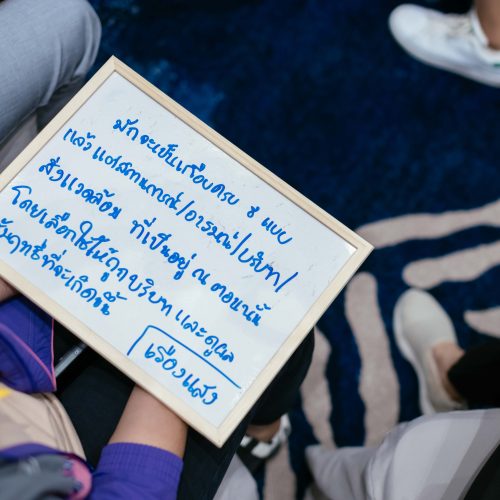 มักจะเป็นเกือบครบ 8 แบบ
แล้วแต่สถานการณ์/อารมณ์/บริบท/
สิ่งแวดล้อม ที่เป็นอยู่ ณ ตอนนั้น
โดยเลือกใช้ให้ถูกบริบท และดูผล
ลัพธ์ที่จะเกิดขึ้น
เรืองแสง